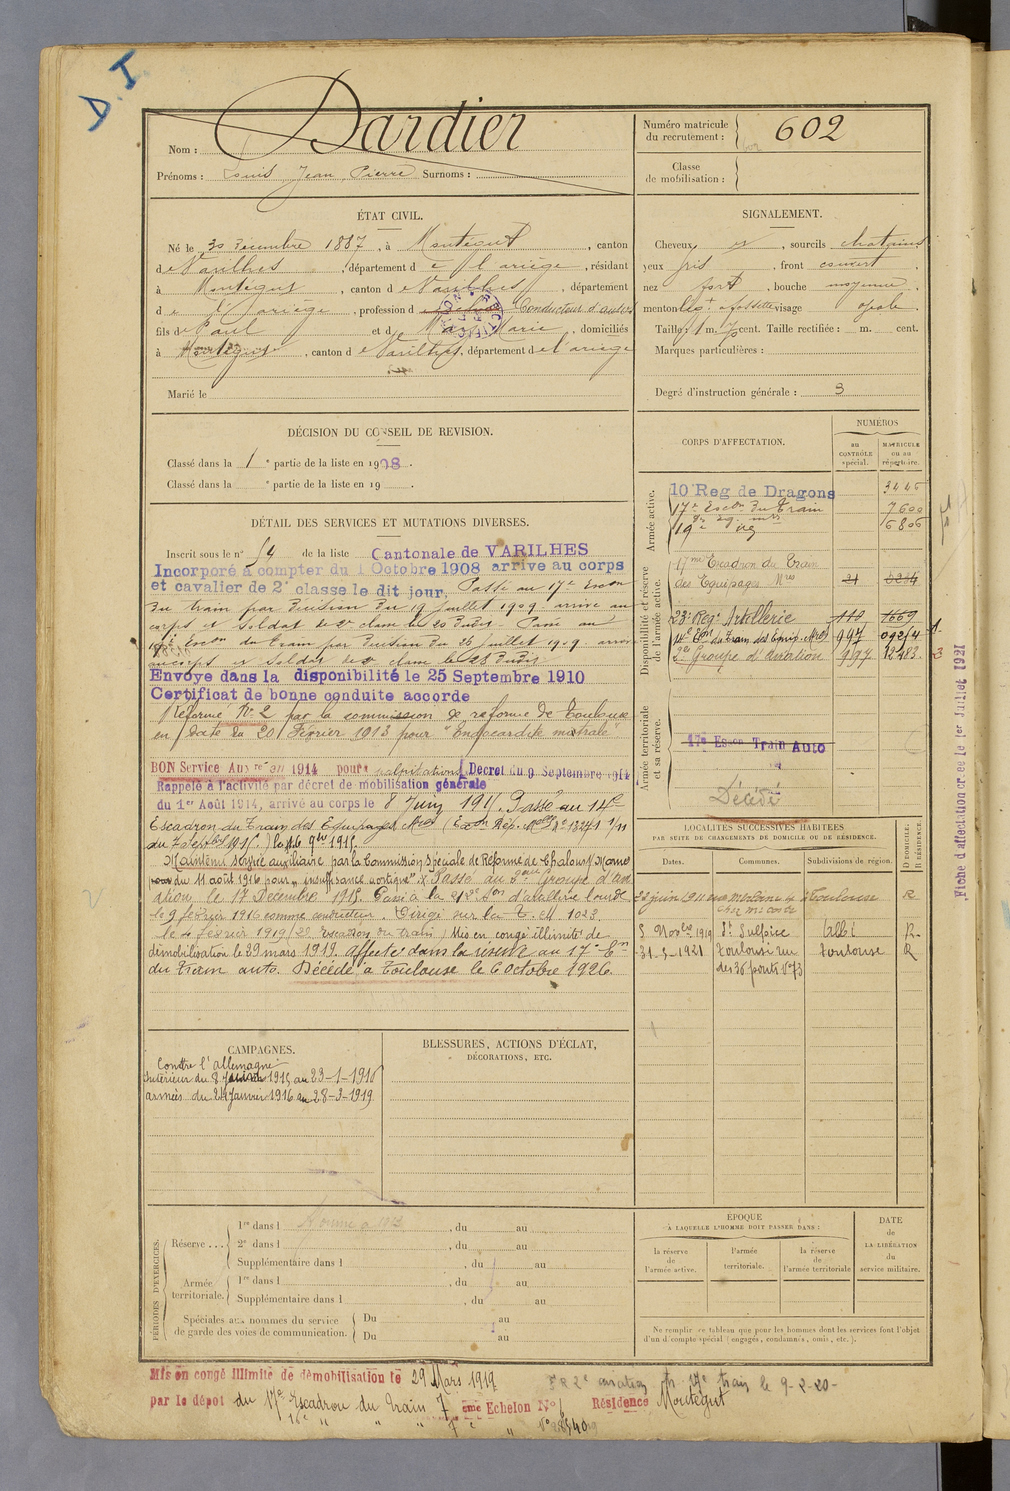 D.I.
Nom : Dardier
Prénoms : Louis Jean Pierre Surnoms :
Numéro matricule du recrutement : 602
Classe de mobilisation :
ÉTAT CIVIL.
Né le 30 Décembre 1887, à Montégut, canton
de Varilhes, département de l'ariège, résidant
à Montégut, canton de Varilhes, département
de l'ariège, profession d Conducteur d'autos
fils de Paul et d Marie, domiciliés
à Montégut, canton de Varilhes, département de l'ariège
Marié le
SIGNALEMENT.
Cheveux, sourcils chatains
yeux gris, front couvert
nez fort, bouche moyenne
menton visage ovale
Taille 1 m. cent. Taille rectifiée : m. cent.
Marques particulières :
Degré d'instruction générale : 3
DÉCISION DU CONSEIL DE REVISION.
Classé dans la 1 e partie de la liste en 1908.
Classé dans la e partie de la liste en 19 .
DÉTAIL DES SERVICES ET MUTATIONS DIVERSES.
Inscrit sous le n° 54 de la liste Cantonale de VARILHES
Incorporé à compter du 1 Octobre 1908 arrive au corps
et cavalier de 2e classe le dit jour, Passé au 17e Escon
du train par décision du 19 juillet 1909 arrivé au
corps et soldat de 2e classe le 20 dudit. Passé au
Escon du Train par décision du 26 juillet 1909 arrivé
au corps et soldat de 2e classe le 28 dudit
Envoye dans la disponibilité le 25 Septembre 1910
Certificat de bonne conduite accorde
Réformé N° 2 par la commission de réforme de Toulouse
en date du 20 Février 1913 pour "Endocardite mitrale".
BON Service Auxre en 1914 pour palpitations Decret du 9 Septembre 1914
Rappelé à l'activité par décret de mobilisation générale
du 1er Août 1914, arrivé au corps le 8 Juin 1915. Passé au 14e
Escadron du Train des Equipages Mres
Maintenu service auxiliaire par la Commission spéciale de Réforme de Chalons s/Marne
du 11 août 1916 pour "insuffisance aortique". Passé au 2eme Groupe d'avi
ation le 17 Décembre 1915. Passé à la d'artillerie lourde
le 9 février 1916 comme conducteur. Dirigé sur la T. M 1023.
le 4 février 1919 (20 Escadron du train) Mis en congé illimité de
démobilisation le 29 mars 1919. affecté dans la réserve au 17e En
du train auto. Décédé à Toulouse le 6 octobre 1926
CORPS D'AFFECTATION.
NUMÉROS
au CONTRÔLE spécial.
MATRICULE ou au répertoire.
Armée active.
10 Reg de Dragons 3445
17e Escon du Train 7600
19e 6806
Disponibilité et réserve de l'armée active.
17me Escadron du Train
des Equipages Mres 21
23e Regt Artillerie 110 1669
14e Eon du Train des Equip. Mres 997 09214
2e Groupe d'aviation 997 12483
Armée territoriale et sa réserve.
17e Escon Train Auto
Décédé
LOCALITÉS SUCCESSIVES HABITÉES
PAR SUITE DE CHANGEMENTS DE DOMICILE OU DE RÉSIDENCE.
Dates. Communes. Subdivisions de région. D DOMICILE. R RÉSIDENCE.
22 juin 1911 Toulouse R
5 Novbre 1919 St Sulpice Albi R.
31-5-1921 Toulouse rue des 36 ponts N°73 Toulouse R
Fiche d'affectation créée le 1er Juillet 1921
CAMPAGNES.
Contre l'allemagne
Intérieur du 8 juin 1915 au 23-1-1916
armées du 24 Janvier 1916 au 28-3-1919
BLESSURES, ACTIONS D'ÉCLAT,
DÉCORATIONS, ETC.
PÉRIODES D'EXERCICES.
Réserve . . .
1re dans l , du au
2e dans l , du au
Supplémentaire dans l , du au
Armée territoriale.
1re dans l , du au
Supplémentaire dans l , du au
Spéciales aux hommes du service
de garde des voies de communication.
Du au
Du au
ÉPOQUE
À LAQUELLE L'HOMME DOIT PASSER DANS :
la réserve de l'armée active.
l'armée territoriale.
la réserve de l'armée territoriale
DATE de LA LIBÉRATION du service militaire.
Ne remplir ce tableau que pour les hommes dont les services font l'objet
d'un décompte spécial (engagés, condamnés, omis, etc.).
Mis en congé illimité de démobilisation le 29 Mars 1919
par le dépôt du 17e Escadron du Train 7 ème Echelon N° Résidence Montégut
aviation tr. 17e train le 9-2-20-